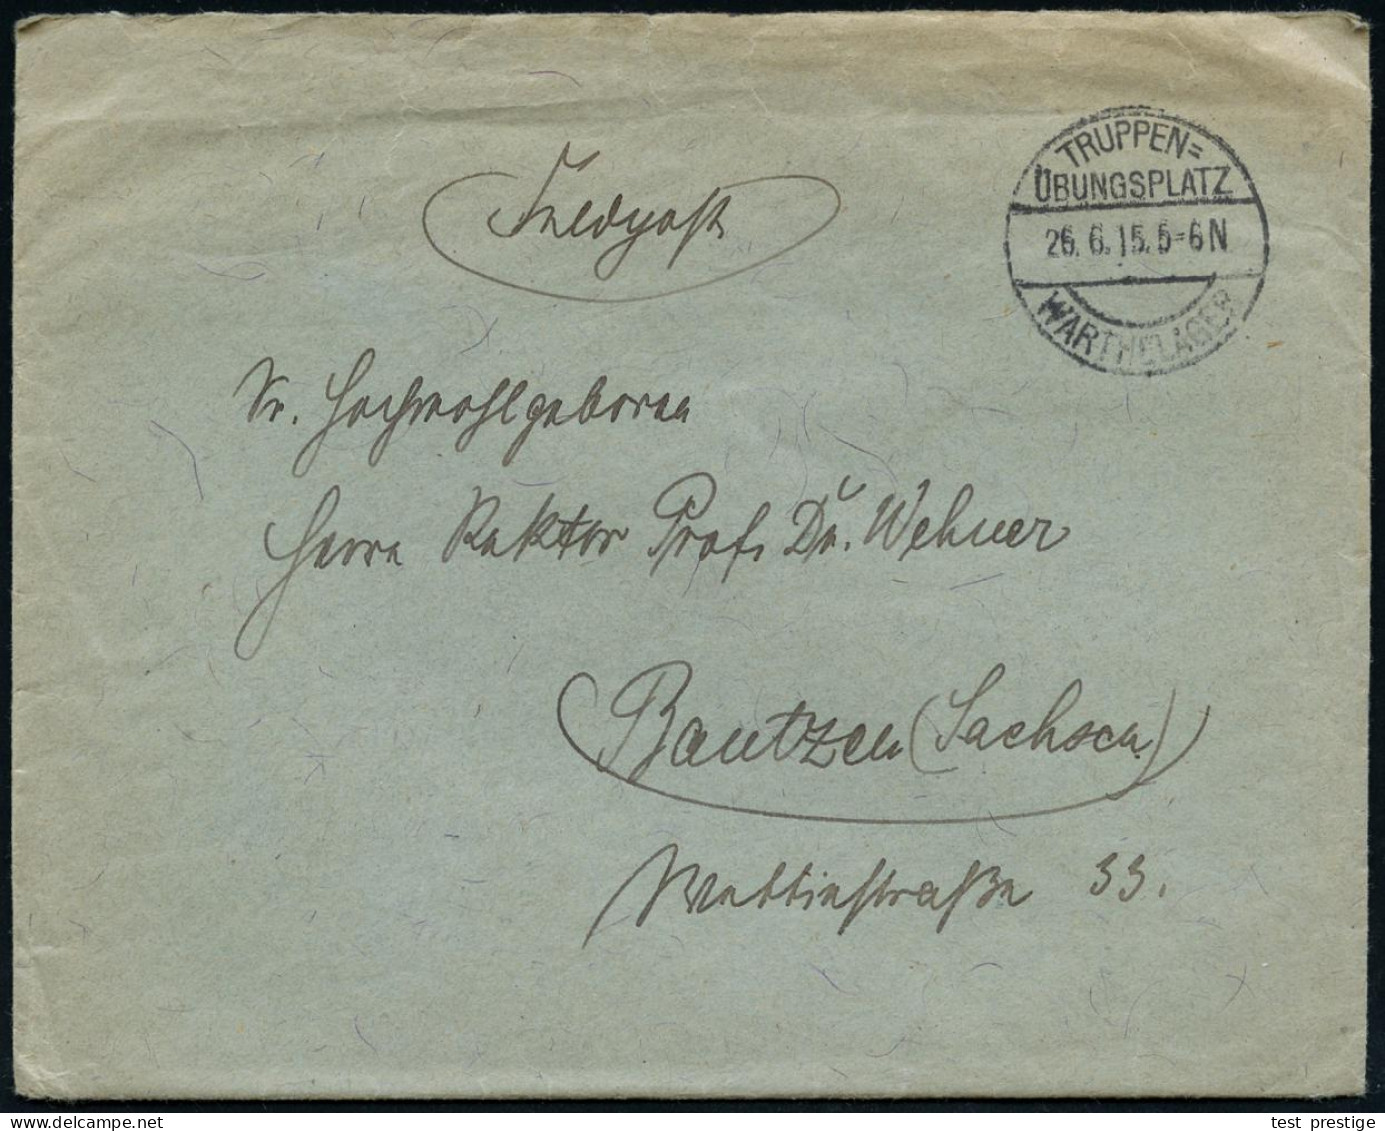 Feldpost
TRUPPEN=
ÜBUNGSPLATZ
26.6.15.5-6N
WARTHELAGER
Sr. Hochwohlgeboren
Herrn Rektor Prof. Dr. Wehner
Bautzen (Sachsen)
Wettinstraße 33.
test prestige